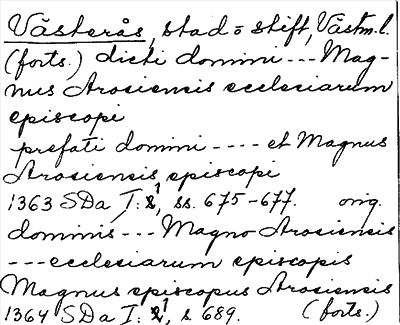 Västerås, stad = stift, Västm.l.
(forts.) dicti domini --- Mag-
nus Arosiensis ecclesiarum
episcopi
prefati domini ---- et Magnus
Arosiensis episcopi
1363 SDa I:1, ss. 675-677. orig.
dominis --- Magno Arosiensis
--- ecclesiarum episcopis
Magnus episcopus Arosiensis
1364 SDa I:1, s 689. (forts.)